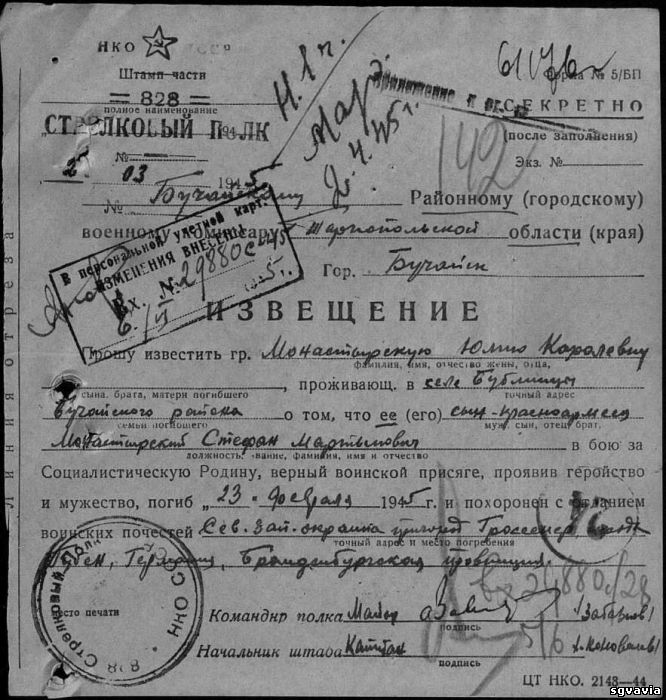 НКО
Форма № 5/БП
Штамп части
828
полное наименование
СТРЕЛКОВЫЙ ПОЛК
Приложение к
СЕКРЕТНО
(после заполнения)
142
Экз. №
№
03 1945
№
Районному (городскому)
военному комиссару Тарнопольской области (края)
Гор. Бучайск
В персональной учетной карт.
ИЗМЕНЕНИЯ ВНЕСЕНЫ
Вх. № 29880с
ИЗВЕЩЕНИЕ
Прошу известить гр. Монастырскую Юлию Каролевну
фамилия, имя, отчество жены, отца,
проживающ. в селе Бублинцы
сына, брата, матери погибшего точный адрес
Бучайского района о том, что ее (его) сын-красноармеец
семьи погибшего муж, сын, отец, брат,
Монастырский Стефан Мартынович в бою за
должность, звание, фамилия, имя и отчество
Социалистическую Родину, верный воинской присяге, проявив геройство
и мужество, погиб „23“ февраля 1945 г. и похоронен с отданием
воинских почестей Сев. зап. окраина
точный адрес и место погребения
Германия, Бранденбургская провинция
828 Стрелковый Полк
НКО СССР
место печати
Командир полка Майор
подпись
Начальник штаба Капитан /Коновалов/
подпись
5/6
ЦТ НКО. 2143—44.
Линия отреза
sgvavia